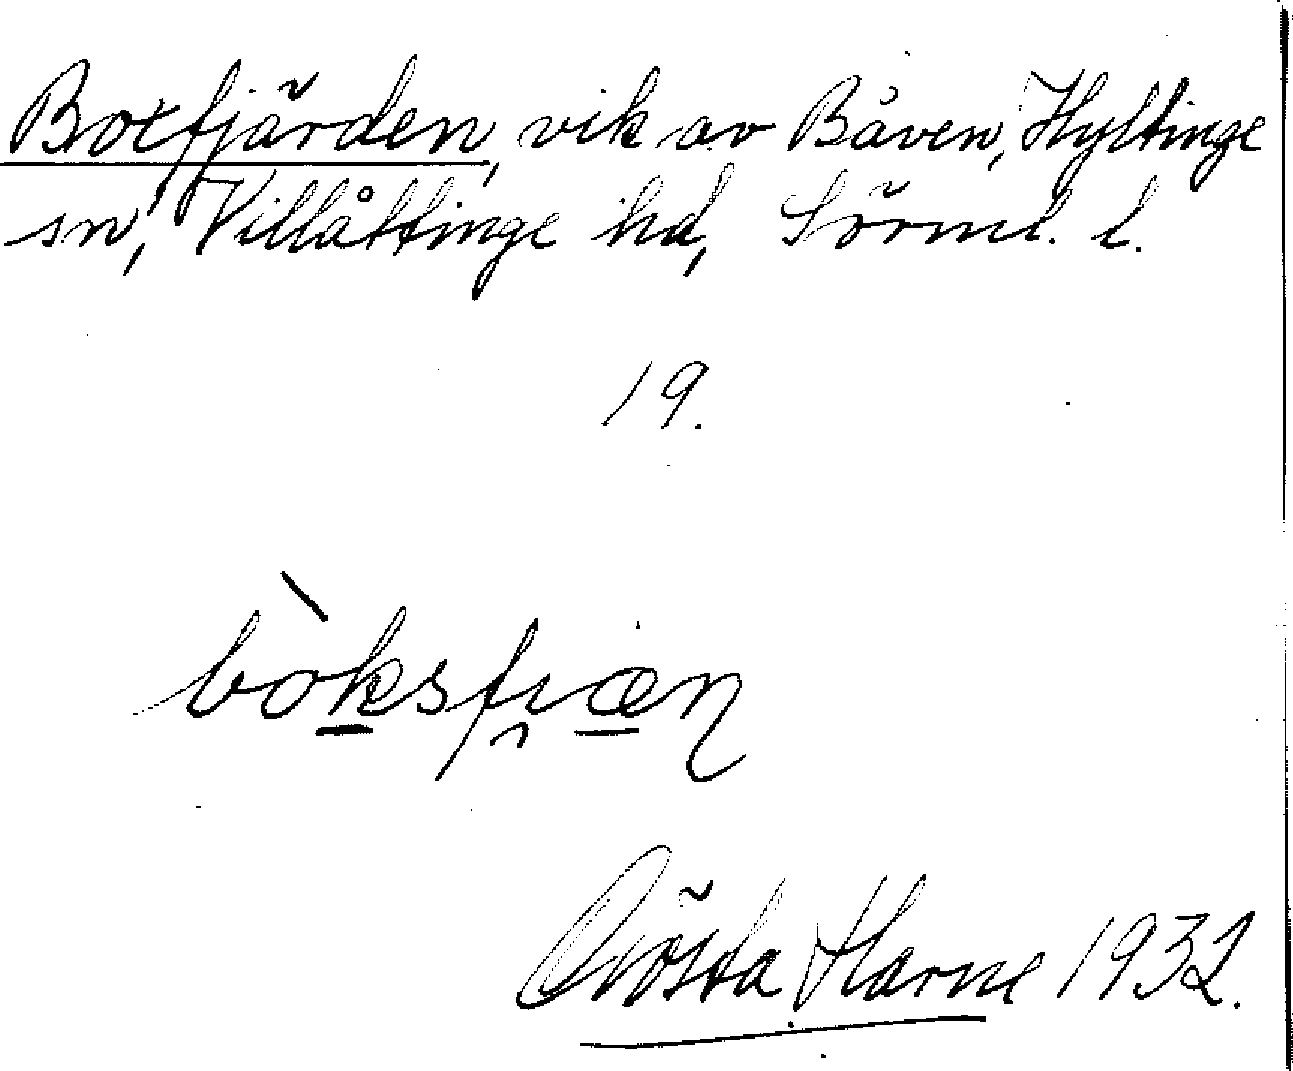 Boxfjärden, vik av Båven, Hyltinge
sn, Villåttinge hd, Sörml. l.
19.
bòksfi̯æn
Gösta Harne 1932.